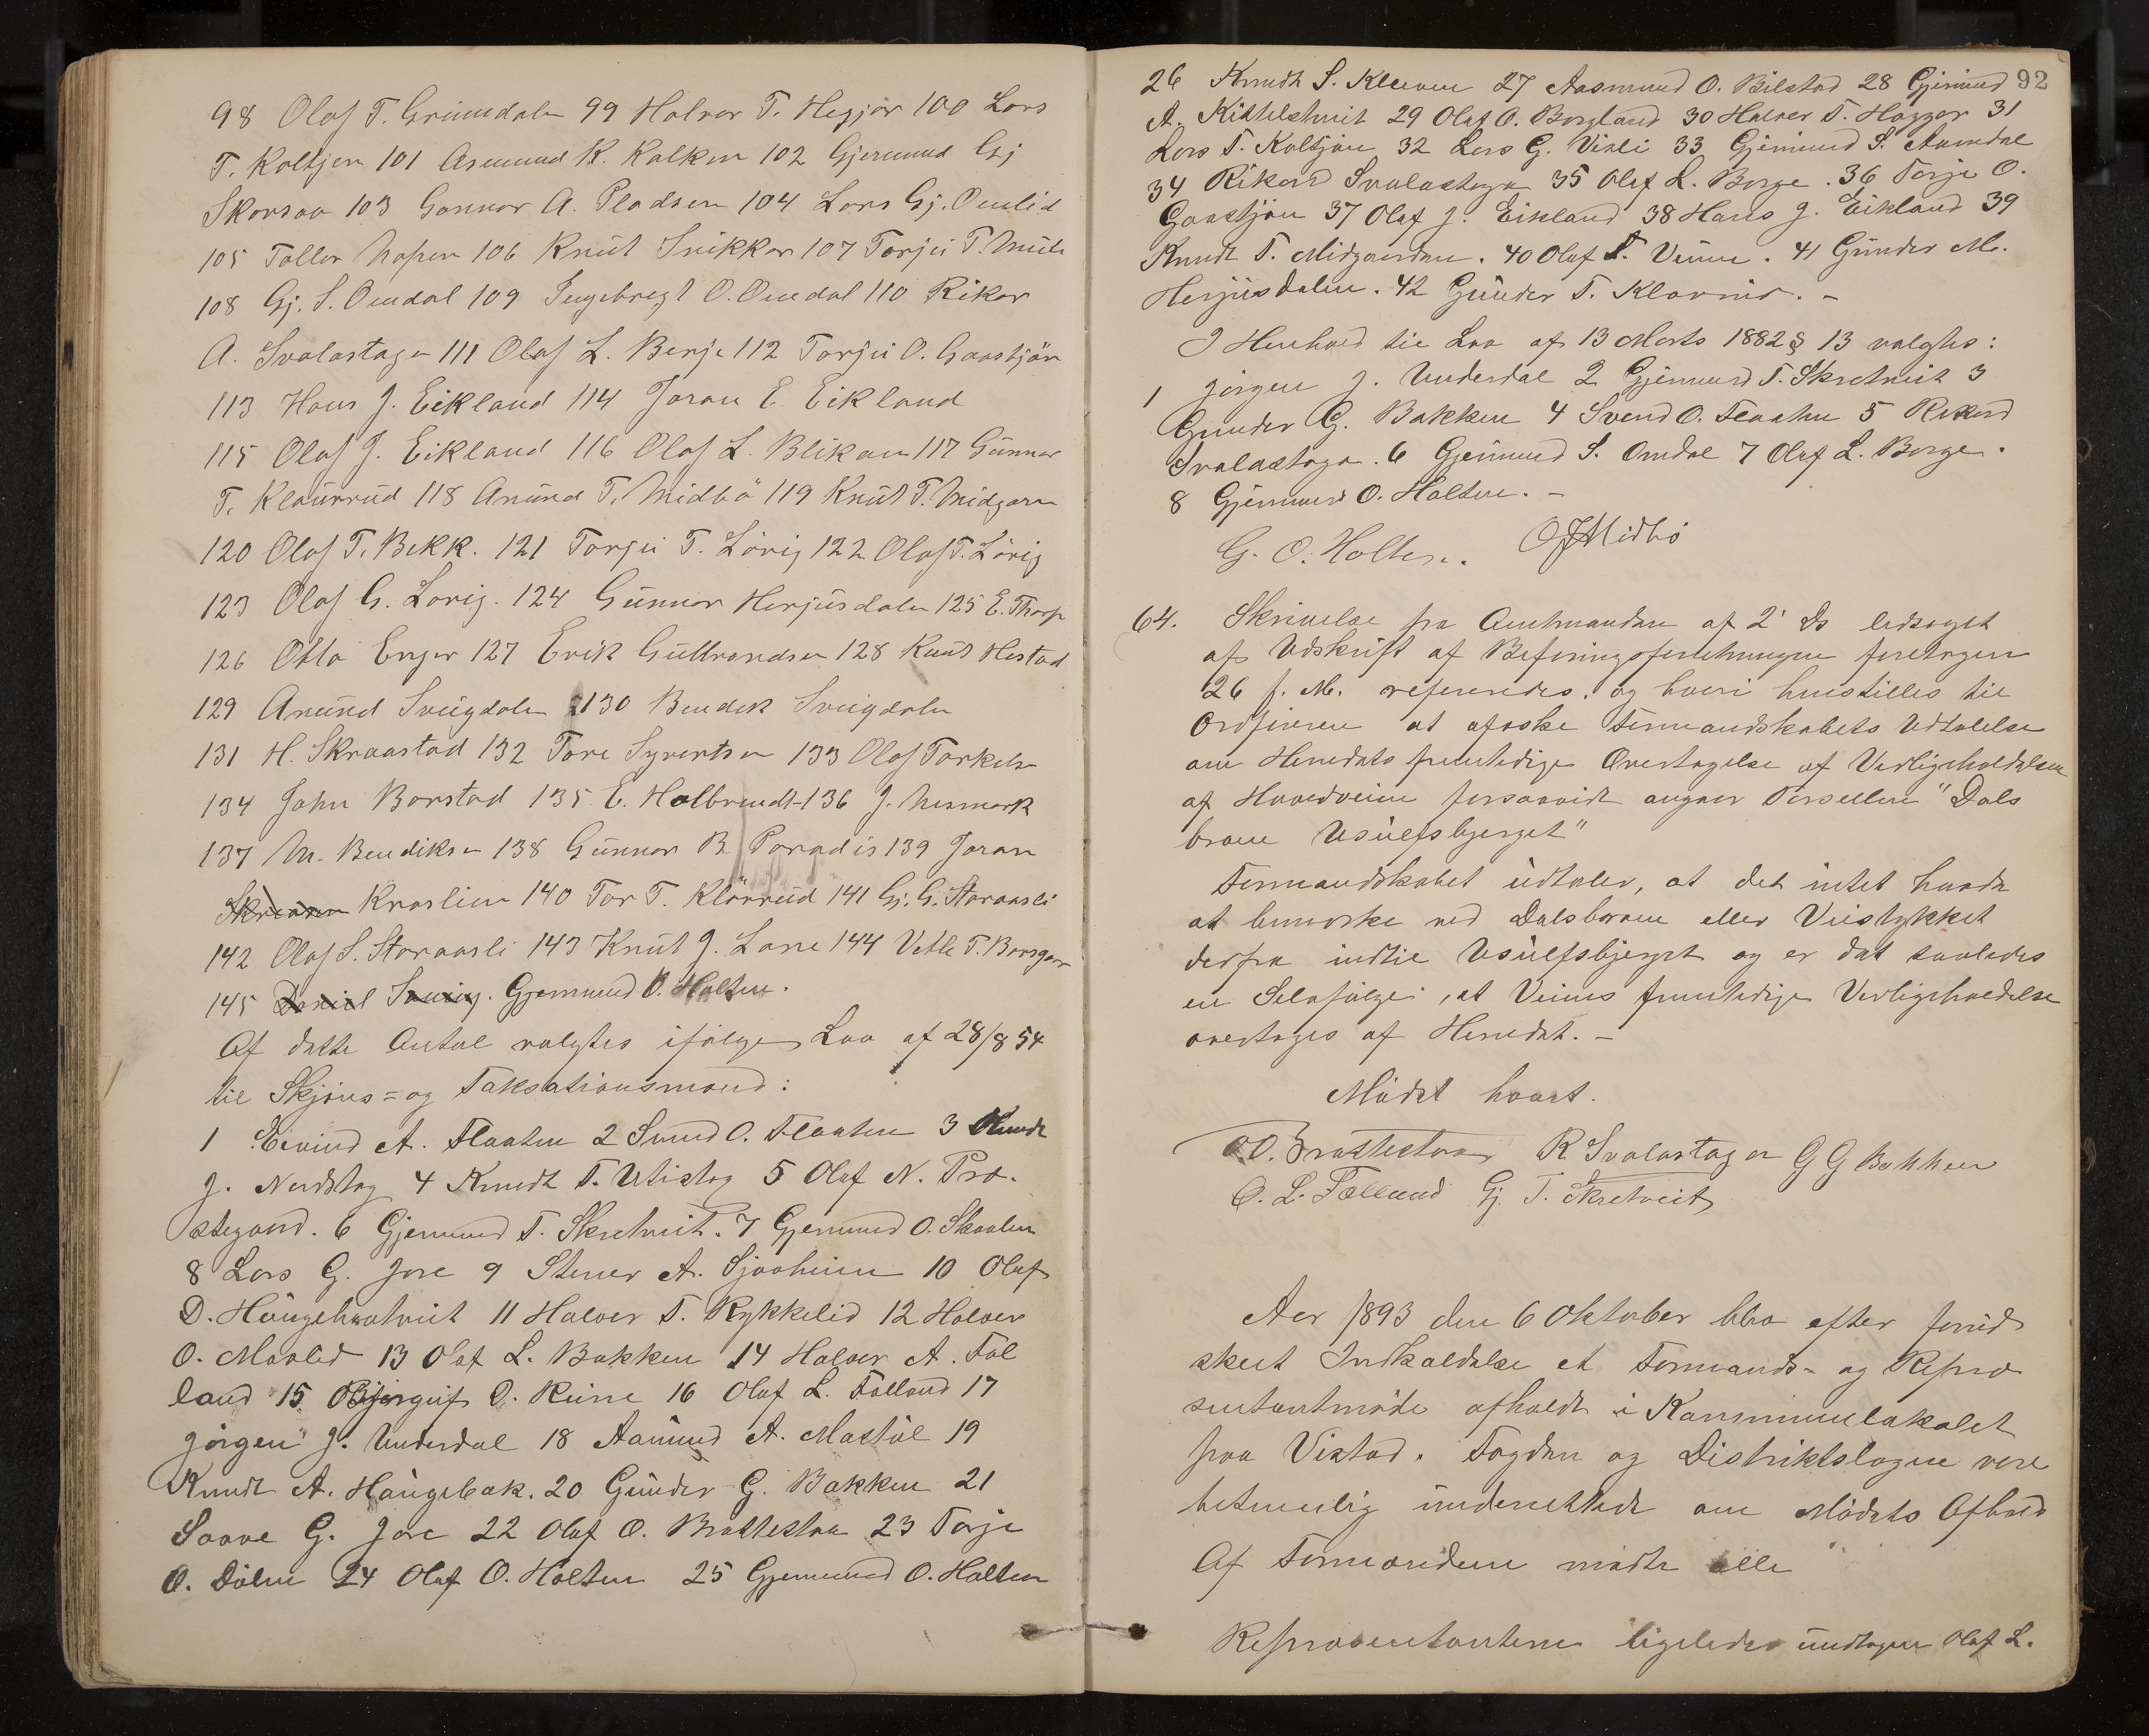 98 Olaf T. Grimdalen 99 Halvor T. Hegjar 100 Lars
T. Koltjen 101 Asmund K. Kalken 102 Gjermund Gj
Skarsaa 103 Gunnar A. Pladsen 104 Lars Gj. Omlid
105 Tallov 106 Knut Snikkar 107 Torju T.
108 Gj. S. Omdal 109 Ingebregt O. Omdal 110 Rikar
A. Svalastoga 111 Olaf L. Berje 112 Torju O. Gaastjön
113 Hans J. Eikland 114 Joran E. Eikland
115 Olaf J. Eikland 116 Olaf L. Blikan 117 Gunnar
T. Klaurrud 118 Anund T. Midbö 119 Knut T. Midgarn
120 Olaf T. Bekk. 121 Torju T. Lörig 122 Olaf T. Lörig
123 Olaf G. Lorig. 124 Gunnar Herjusdalen 125 E. Thorp
126 Otto Enger 127 Erik Gulbrandsen 128 Knut Hestad
129 Anund Sveigdalen 130 Bendek Sveigdalen
131 H. Skraastad 132 Tore Syvertsen 133 Olaf Torkels
134 John Borstad 135 E. Halbrendt 136 J. Nesmark
137 M. Bendiksen 138 Gunnar B Paradis 139 Joran
Kraslien 140 Tor T. Klörrud 141 Gj. G. Storaasli
142 Olaf S. Storaasli 143 Knut J. Lone 144 Vetle T. Borsgar
145 Daniel Gjermund O. Holten.
Af dette Antal valgtes ifølge Lov af 28/8 54
til Skjøns= og Taksationsmænd:
1 Eivind A. Flaaten 2 Svend O. Flaaten 3 Knudt
J. Nordstog 4 Knudt T. Utistog 5 Olaf N. Præ-
stegaard. 6 Gjermund T. Skretveit. 7 Gjermund O. Skaalen
8 Lars G. Jore 9 Stener A. Sjøheim 10 Olaf
D. 11 Halvor T. Rykkelid 12 Halvor
O. Moolid 13 Olaf L. Bakken 14 Halvor A. Føl
land 15 Bjørguf O. Ruine 16 Olaf L. Følland 17
Jörgen J. Underdal 18 Aamund A. Mastøl 19
Knudt A. Haugebak. 20 Gunder G. Bakken 21
Saave G. Jore 22 Olaf O. Brattestaa 23 Torje
O. Dølen 24 Olaf O. Holten 25 Gjermund O. Holten
92
26 Knudt S. Kleiven 27 Aasmund O. Bilstad 28 Gjermund
A. Kittelstveit 29 Olaf O. Borgland 30 Halvor T. Hægger 31
Lars T. Koltjøn 32 Lars G. Visli 33 Gjermund S. Aamdal
34 Rikard Svalastoga 35 Olaf L. Berge. 36 Torje O.
Gaastjøn 37 Olaf J. Eikland 38 Hans J. Eikland 39
Knudt T. Midgaarden. 40 Olaf T. Veum. 41 Gunder M.
Herjusdalen. 42 Gunder T. Klovrud. -
I Henhold til Lov af 13 Marts 1882 § 13 valgtes:
1 Jörgen J. Underdal 2 Gjermund T. Skretveit 3
Gunder G. Bakken 4 Svend O. Flaaten 5 Rikard
Svalastoga. 6 Gjermund S. Omdal 7 Olaf L. Berge.
8 Gjermund O. Holten. -
G. O. Holten. O J Midbø
64. Skrivelse fra Amtmanden af 2' Ds ledsaget
af Udskrift af Befaringsforretningen foretagen
26 f. M. refereredes. og hvori henstilles til
Ordføreren at afæske Formandskabets Udtalelse
om Herredets fremtidige Overtagelse af Vedligeholdelsen
af Hovedveien forsaavidt angaar Parsellen "Dals
broen Usulfsbjerget"
Formandskabet udtaler, at det intet havde
at bemærke ved Dalsbroen eller Veistykket
derfra indtil Usulfsbjerget og er det saaledes
en Selvfølge, at Veiens fremtidige Vedligeholdelse
overtages af Herredet. -
Mødet hævet.
O O. Brattestaa R Svalastoga G G Bakken
O. L. Følland Gj. T. Skretveit
Aar 1893 den 6 Oktober blev efter forud
skeet Indkaldelse et Formands- og Repræ
sentantmøde afholdt i Kommunelokalet
paa Vistad. Fogden og Distriktslægen vare
betimelig underrettede om Mødets Afhold
Af Formændene mødte alle
Repræsentanterne ligeledes undtagen Olaf L.